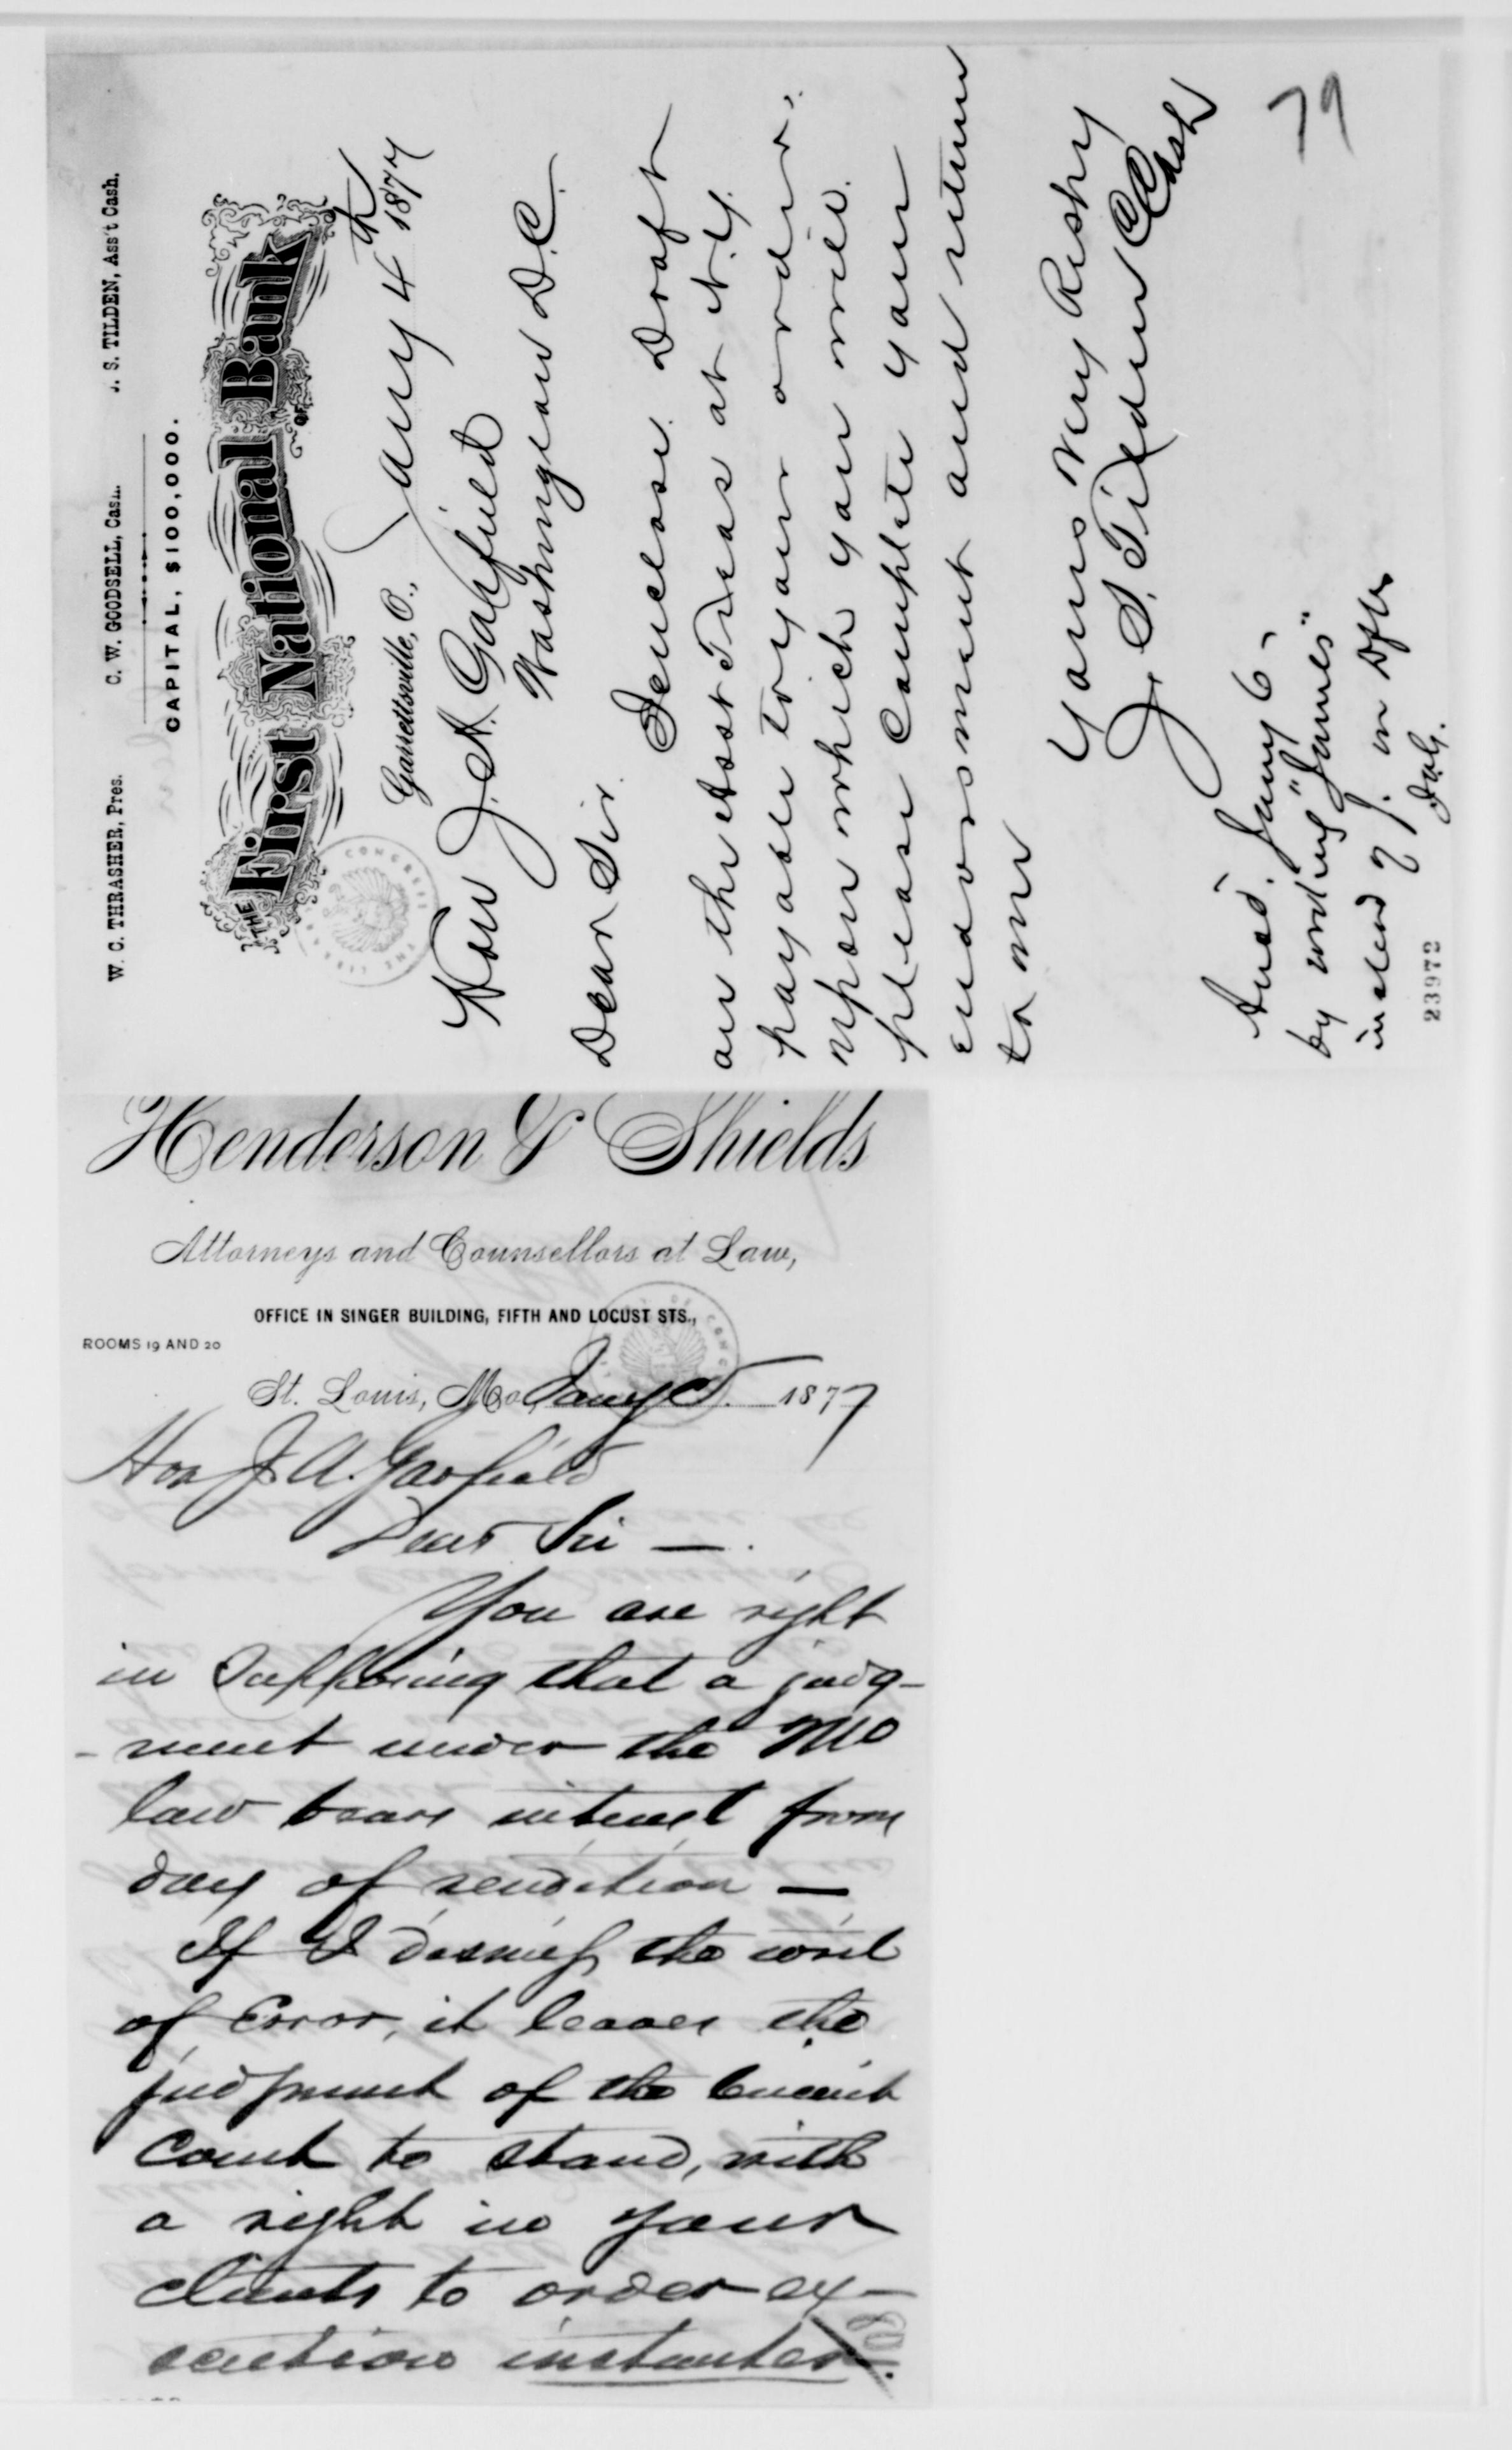 W. C. THRASHER, Pres. C. W. GOODSELL, Cash. J. S. TILDEN, Ass't Cash.
CAPITAL, $100,000.
THE First National Bank OF
Garrettsville, O., Jany 4th 1877
Hon J. A. Garfield
Washington D.C.
Dear Sir.
Inclose Draft
on the Asst Treas at N.Y.
payable to your order.
upon which you will
please complete your
endorsment and return
to me
Yours very Resply
J. S. Tilden Cash
79
Ansd. Jany 6-
by writing "James"
instead of J. in Dfts
J.a.G.
23972
Henderson & Shields
Attorneys and Counsellors at Law,
OFFICE IN SINGER BUILDING, FIFTH AND LOCUST STS.,
ROOMS 19 AND 20
St. Louis, Mo., Jany 5. 1877
Hon J. A. Garfield
Dear Sir —.
You are right
in supposing that a judg-
-ment under the Mo
law bears interest from
day of rendition —
If I dismiss the writ
of Error, it leaves the
judgment of the Circuit
Court to stand, with
a right in your
clients to order ex-
ecution instanter.